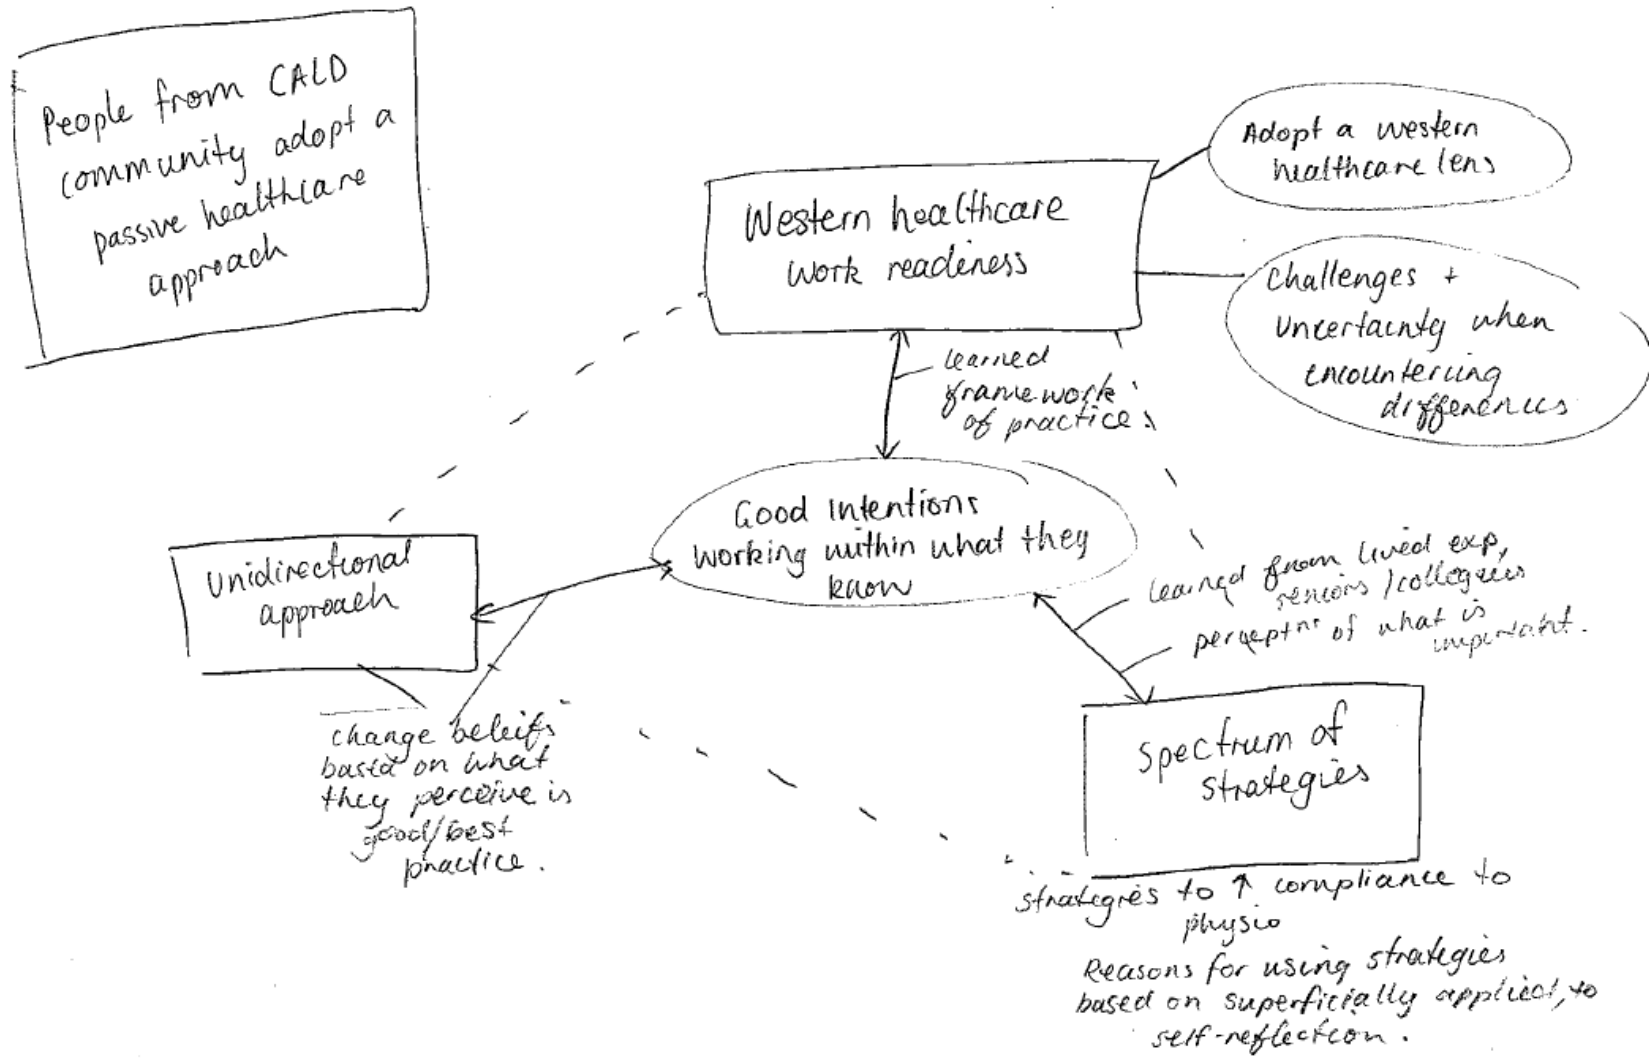 People from CALD
community adopt a
passive healthcare
approach
Adopt a western
healthcare lens
Western healthcare
work readiness
Challenges +
uncertainty when
encountering
differences
learned
framework
of practice.
Good intentions
working within what they
know
Unidirectional
approach
learned from lived exp,
seniors/collegues
perceptns of what is
important.
change beleifs
based on what
they perceive is
good/best
practice.
Spectrum of
strategies
strategies to ↑ compliance to
physio
Reasons for using strategies
based on superficially applied, to
self-reflection.